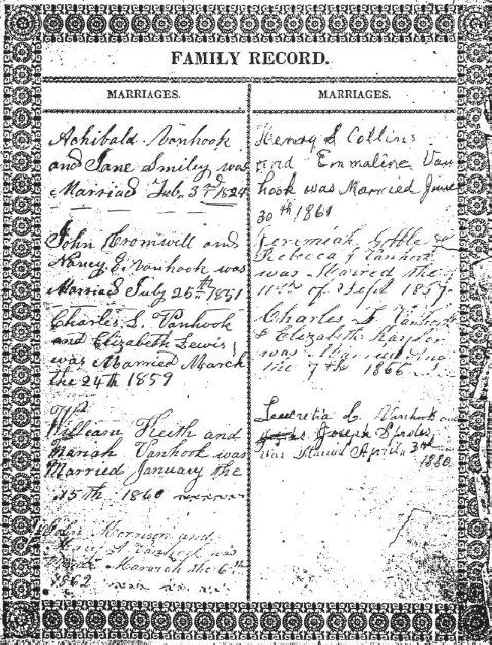 FAMILY RECORD.
MARRIAGES.
Achibald Vanhook
and Jane Smiley was
Married Feb. 3rd 1824
John Cromwell and
Nancy E. Vanhook was
Married July 25th 1851
Charles S. Vanhook
and Elizabeth Lewis
was Married March
the 24th 1859
Wm
William Keith and
Mariah Vanhook was
Married January the
15th 1860
John Morrison and
Vanhook was
March the 6th
1862
MARRIAGES.
Henry S Collins
and Emmaline Van
hook was Married June
30th 1861
Jeremiah
Rebecca J Vanhook
was Married the
11th of Sept 1857
Charles S Vanhook
& Elizabeth
was
the 7th 1866
Lucretia L. Vanhook and
Joseph
was Aprile 3rd
1880